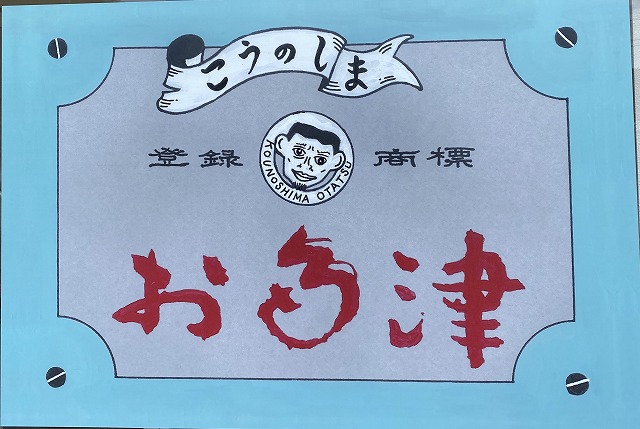 こうのしま
登録 商標
KOUNOSHIMA OTATSU
お多津